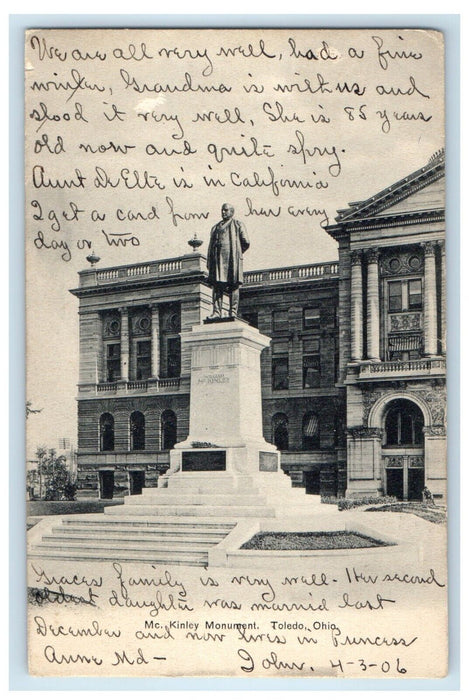 We are all very well, had a fine
winter, Grandma is with us and
stood it very well, She is 85 years
old now and quite spry.
Aunt DeEtte is in California
I get a card from her every
day or two
McKINLEY
Graces family is very well. Her second
oldest daughter was married last
December and now lives in Princess
Mc. Kinley Monument. Toledo, Ohio.
Anne Md — John. 4-3-06